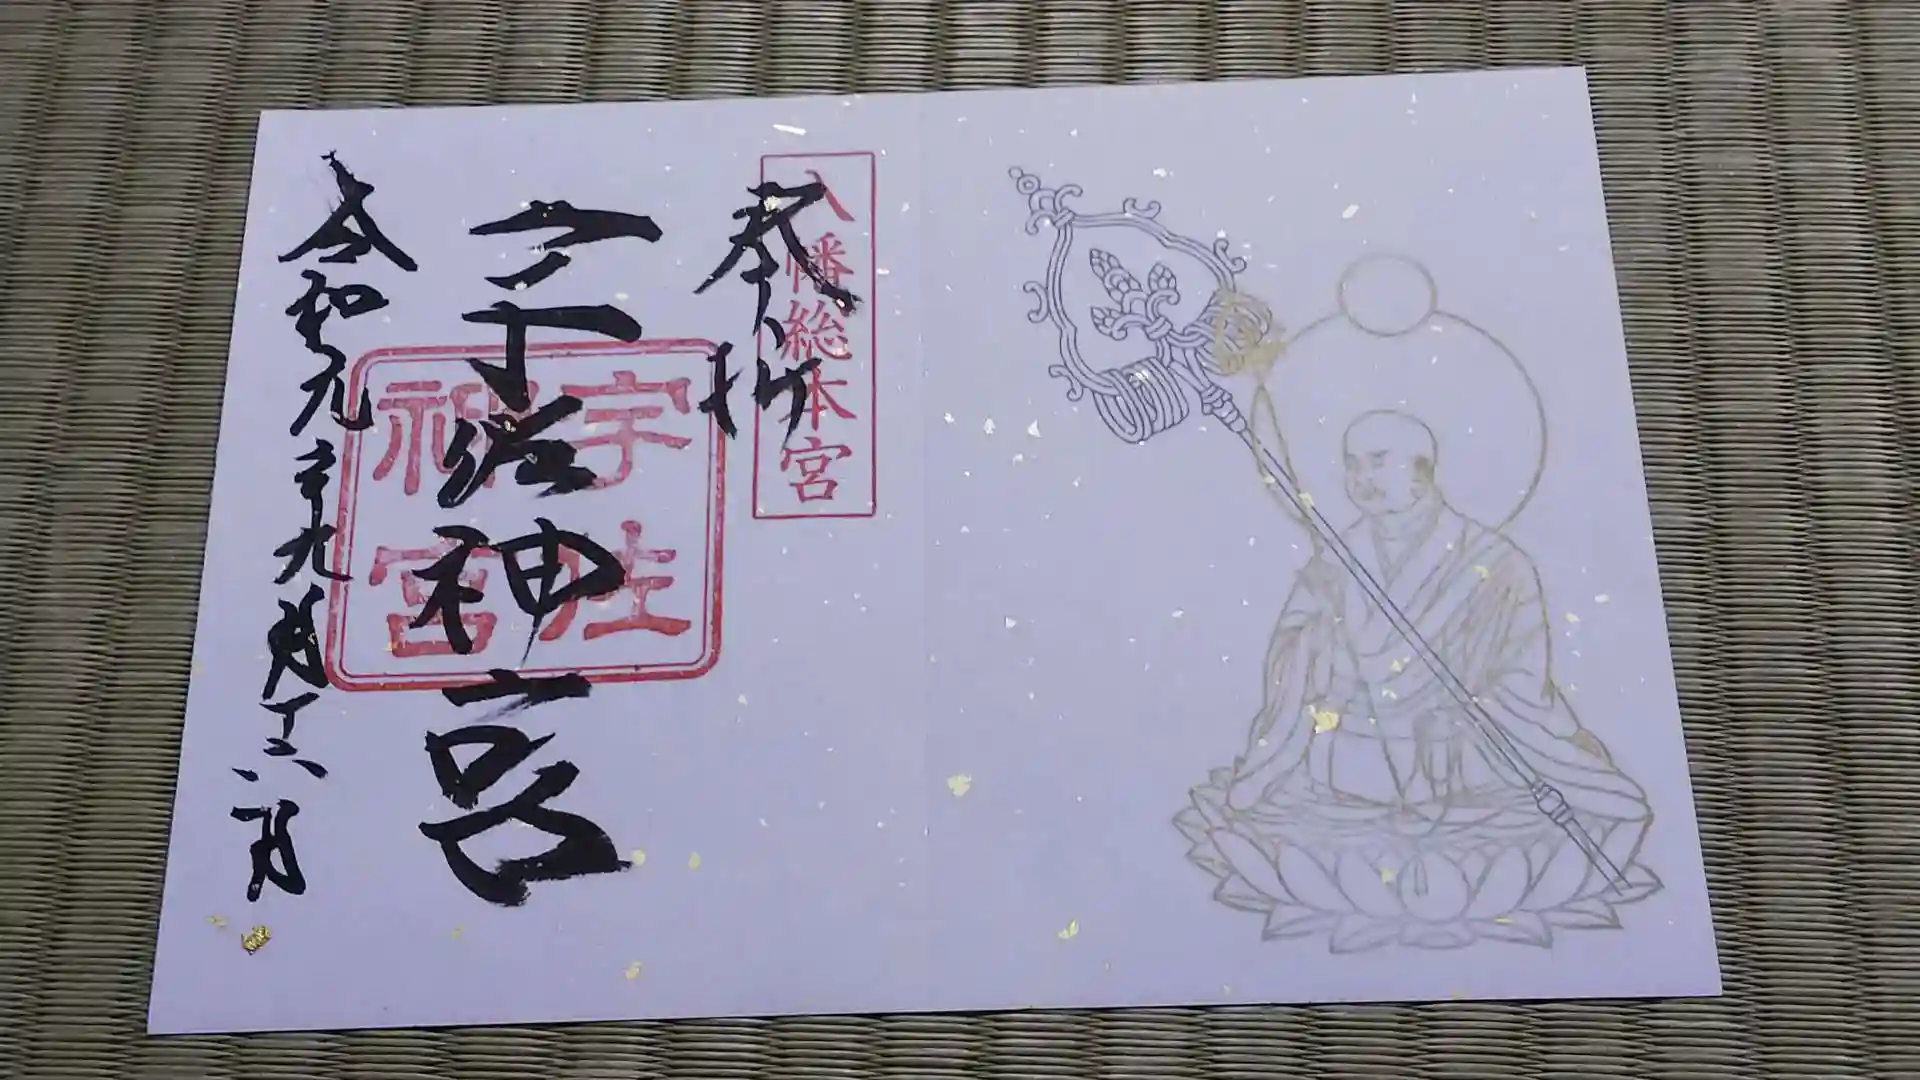 奉拝
八幡総本宮
宇佐神宮
宇佐神宮
令和元年九月十六日